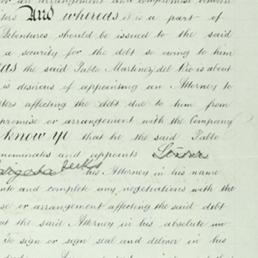 or an arrangement and compromise between
ters And whereas it is a part of
Debentures should be issued to the said
a security for the debt so owing to him
as the said Pablo Martinez del Rio is about
is desirous of appointing an Attorney to
ters affecting the debt due to him from
promise or arrangement with the Company
know ye that he the said Pablo
nominates and appoints Señor
his Attorney in his name
ente and complete any negotiations with the
se or arrangement affecting the said debt
at the said Attorney in his absolute
To sign or sign seal and deliver in his